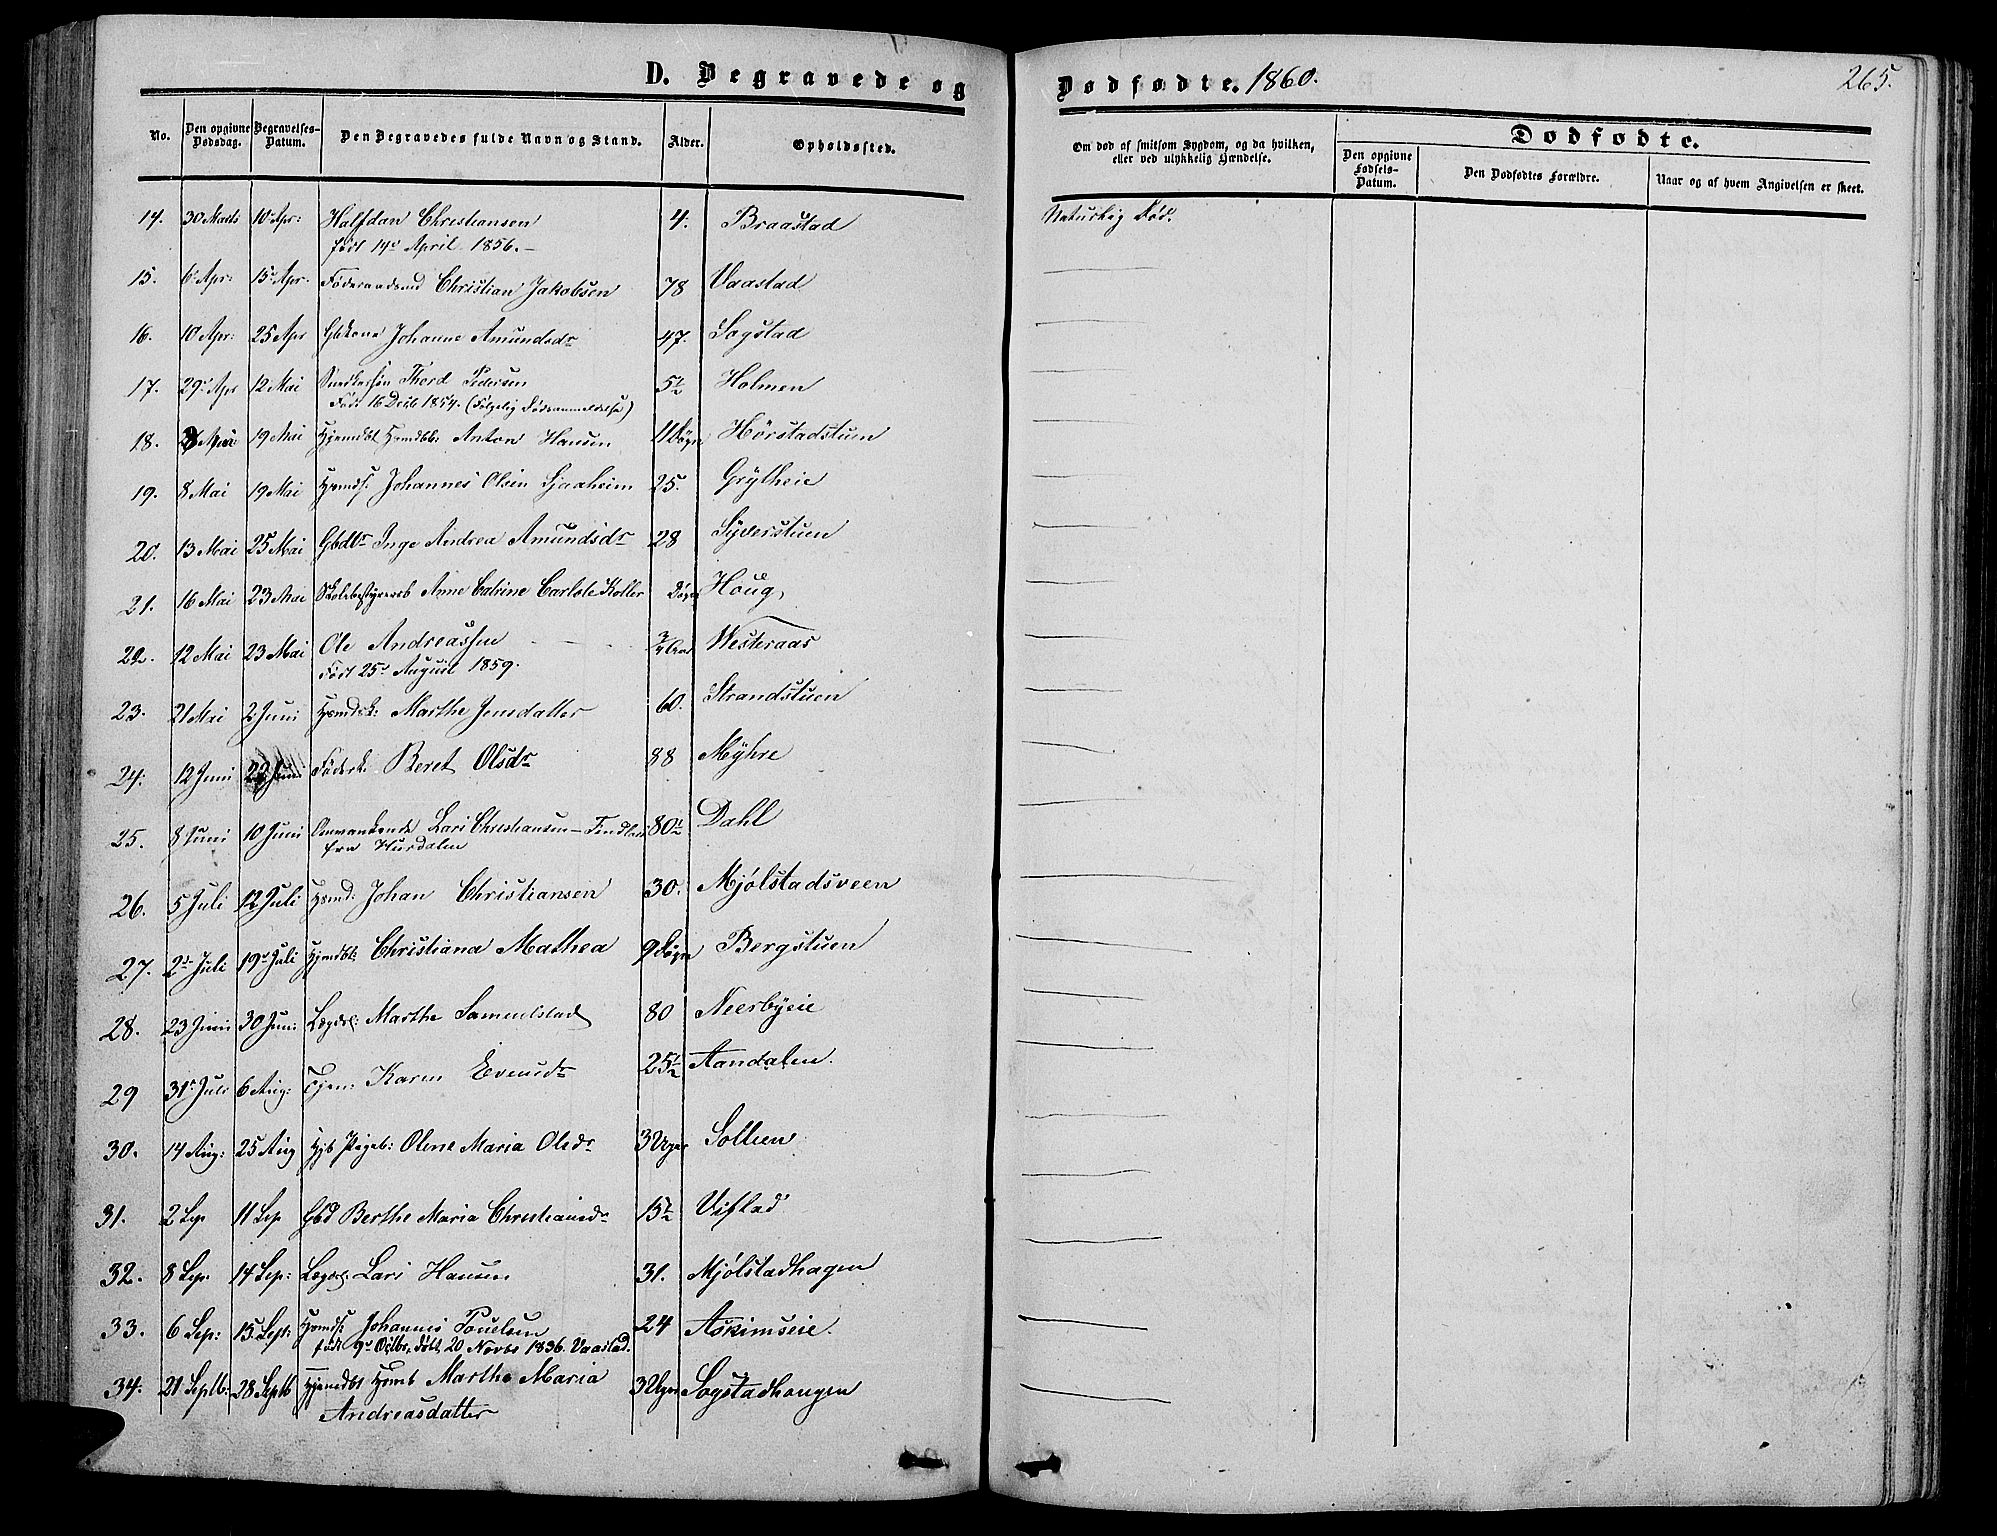 D. Begravede og
Dødfødte. 1860.
265.
No.
Den opgivne Dødsdag.
Begravelses-Datum.
Den Begravedes fulde Navn og Stand.
Alder.
Opholdssted.
Om død af smitsom Sygdom, og da hvilken, eller ved ulykkelig Hændelse.
Dødfødte.
Den opgivne Fødsels-Datum.
Den Dødfødtes Forældre.
Naar og af hvem Angivelsen er skeet.
14. 30 Marts 10 Apr: Halfdan Christiansen 4. Braastad Naturlig Død.
født 14de April 1856. –
15. 6 Apr: 15 Apr. Føderaadsmd Christian Jakobsen 78 Vaastad
16. 10 Apr: 25 Apr Gbkone Johanne Amundsdr 47. Sogstad
17. 29 Apr 12 Mai Thord Pedersen 5½ Holmen
Født 16 Decb 1854. (Følgelig Dødsanmeldelse)
18. 19 Mai Hjemdbt Hsmdbb: Anton Hansen 11 Døgn Hörstadstuen
19. 8 Mai 19 Mai Hsmds: Johannes Olsen Sjaaheim 25. Grÿtheie
20. 13 Mai 25 Mai Gbdtr Inge Andrea Amundsdr 28 Syverstuen
21. 16 Mai 23 Mai Skolebestyrerb Anne Catrine Carlote Koller Døgn Houg,
22. 12 Mai 23 Mai Ole Andreassen ¾ Aar Westeraas
Født 25de August 1859.
23. 21 Mai 2 Juni Hsmdsk: Marthe Jensdatter 60. Strandstuen
24. 12 Juni Føderk: Beret Olsdr 88 Mÿhre
25. 8 Juni 10 Juni Omvankende Lars Christiansen – 80½ Dahl
fra Hurdalen
26. 5 Juli 12 Juli Hsmd: Johan Christiansen 30. Mjølstadsveen
27. 2 Juli 19 Juli Hjemdbt: Christiana Mathea 9 Døgn Bergstuen
28. 23 Juni 30 Juni Lægdsl: Marthe Samuelstad 80 Neerbÿeie
29 31 Juli 6 Aug: Tjen: Karen Evensdr 25½ Aandalen.
30. 14 Aug: 25 Aug Hjb Pigeb: Olene Maria Olsdr 3 Uger Sollien
31. 2 Sep 11 Sep Gbd Berthe Maria Christiansdr 15½ Vistad
32. 8 Sep. 14 Sep: Lægdsl: Lars Hansen 31. Mjølstadhagen
33. 6 Sep: 15 Sept: Hsmds: Johannes Pouelsen 24 Askimseie.
født 9de Octbr, døbt 20 Novbr 1836. Vaastad.
34. 21 Septb: 28 Septb Hjemdbt Hsmb Marthe Maria 3 Uger Sogstadhaugen
Andreasdatter